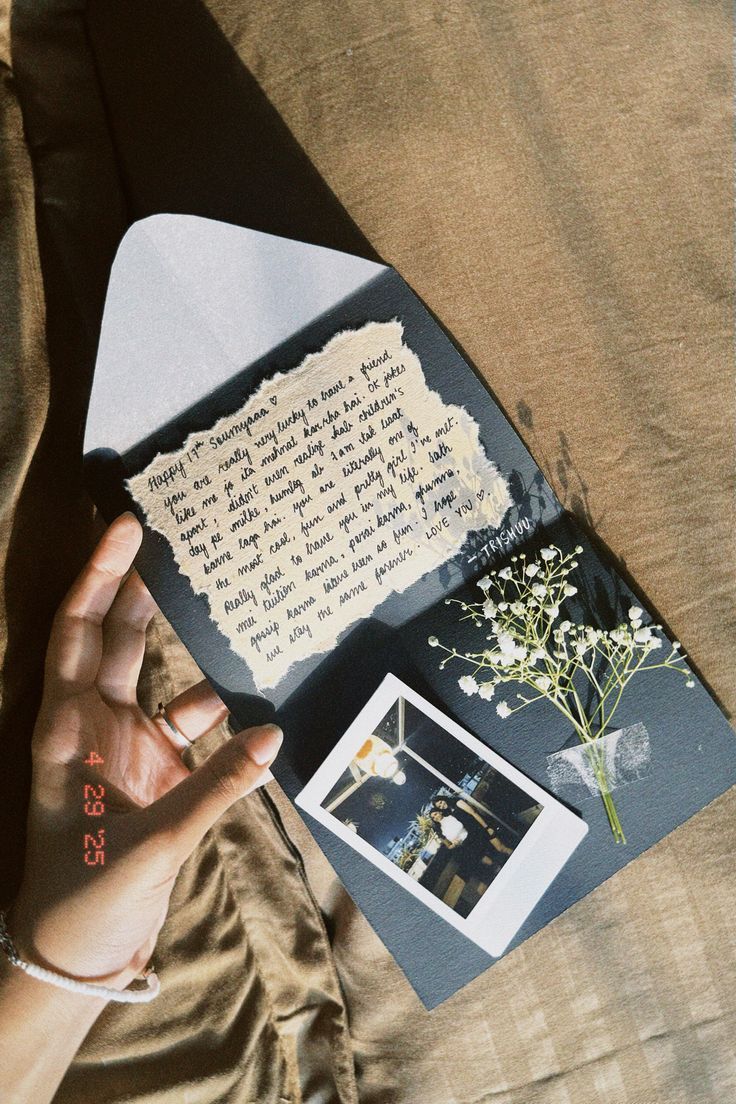 Happy 17th Soumyaaa ♡
you are really very lucky to have a friend
like me jo ita mehnat kar rha hai. OK jokes
apart, i didn't even realize kab children's
day pe milke, humlog ab I am that want
karne laga hai. you are literally one of
the most cool, fun and pretty girl I've met.
Really glad to have you in my life. Sath
mei tuition karna, parai karna, ghumna,
gossip karna has been so fun. I hope
we stay the same forever. LOVE YOU ♡
- TRISHUU
4 29 '25